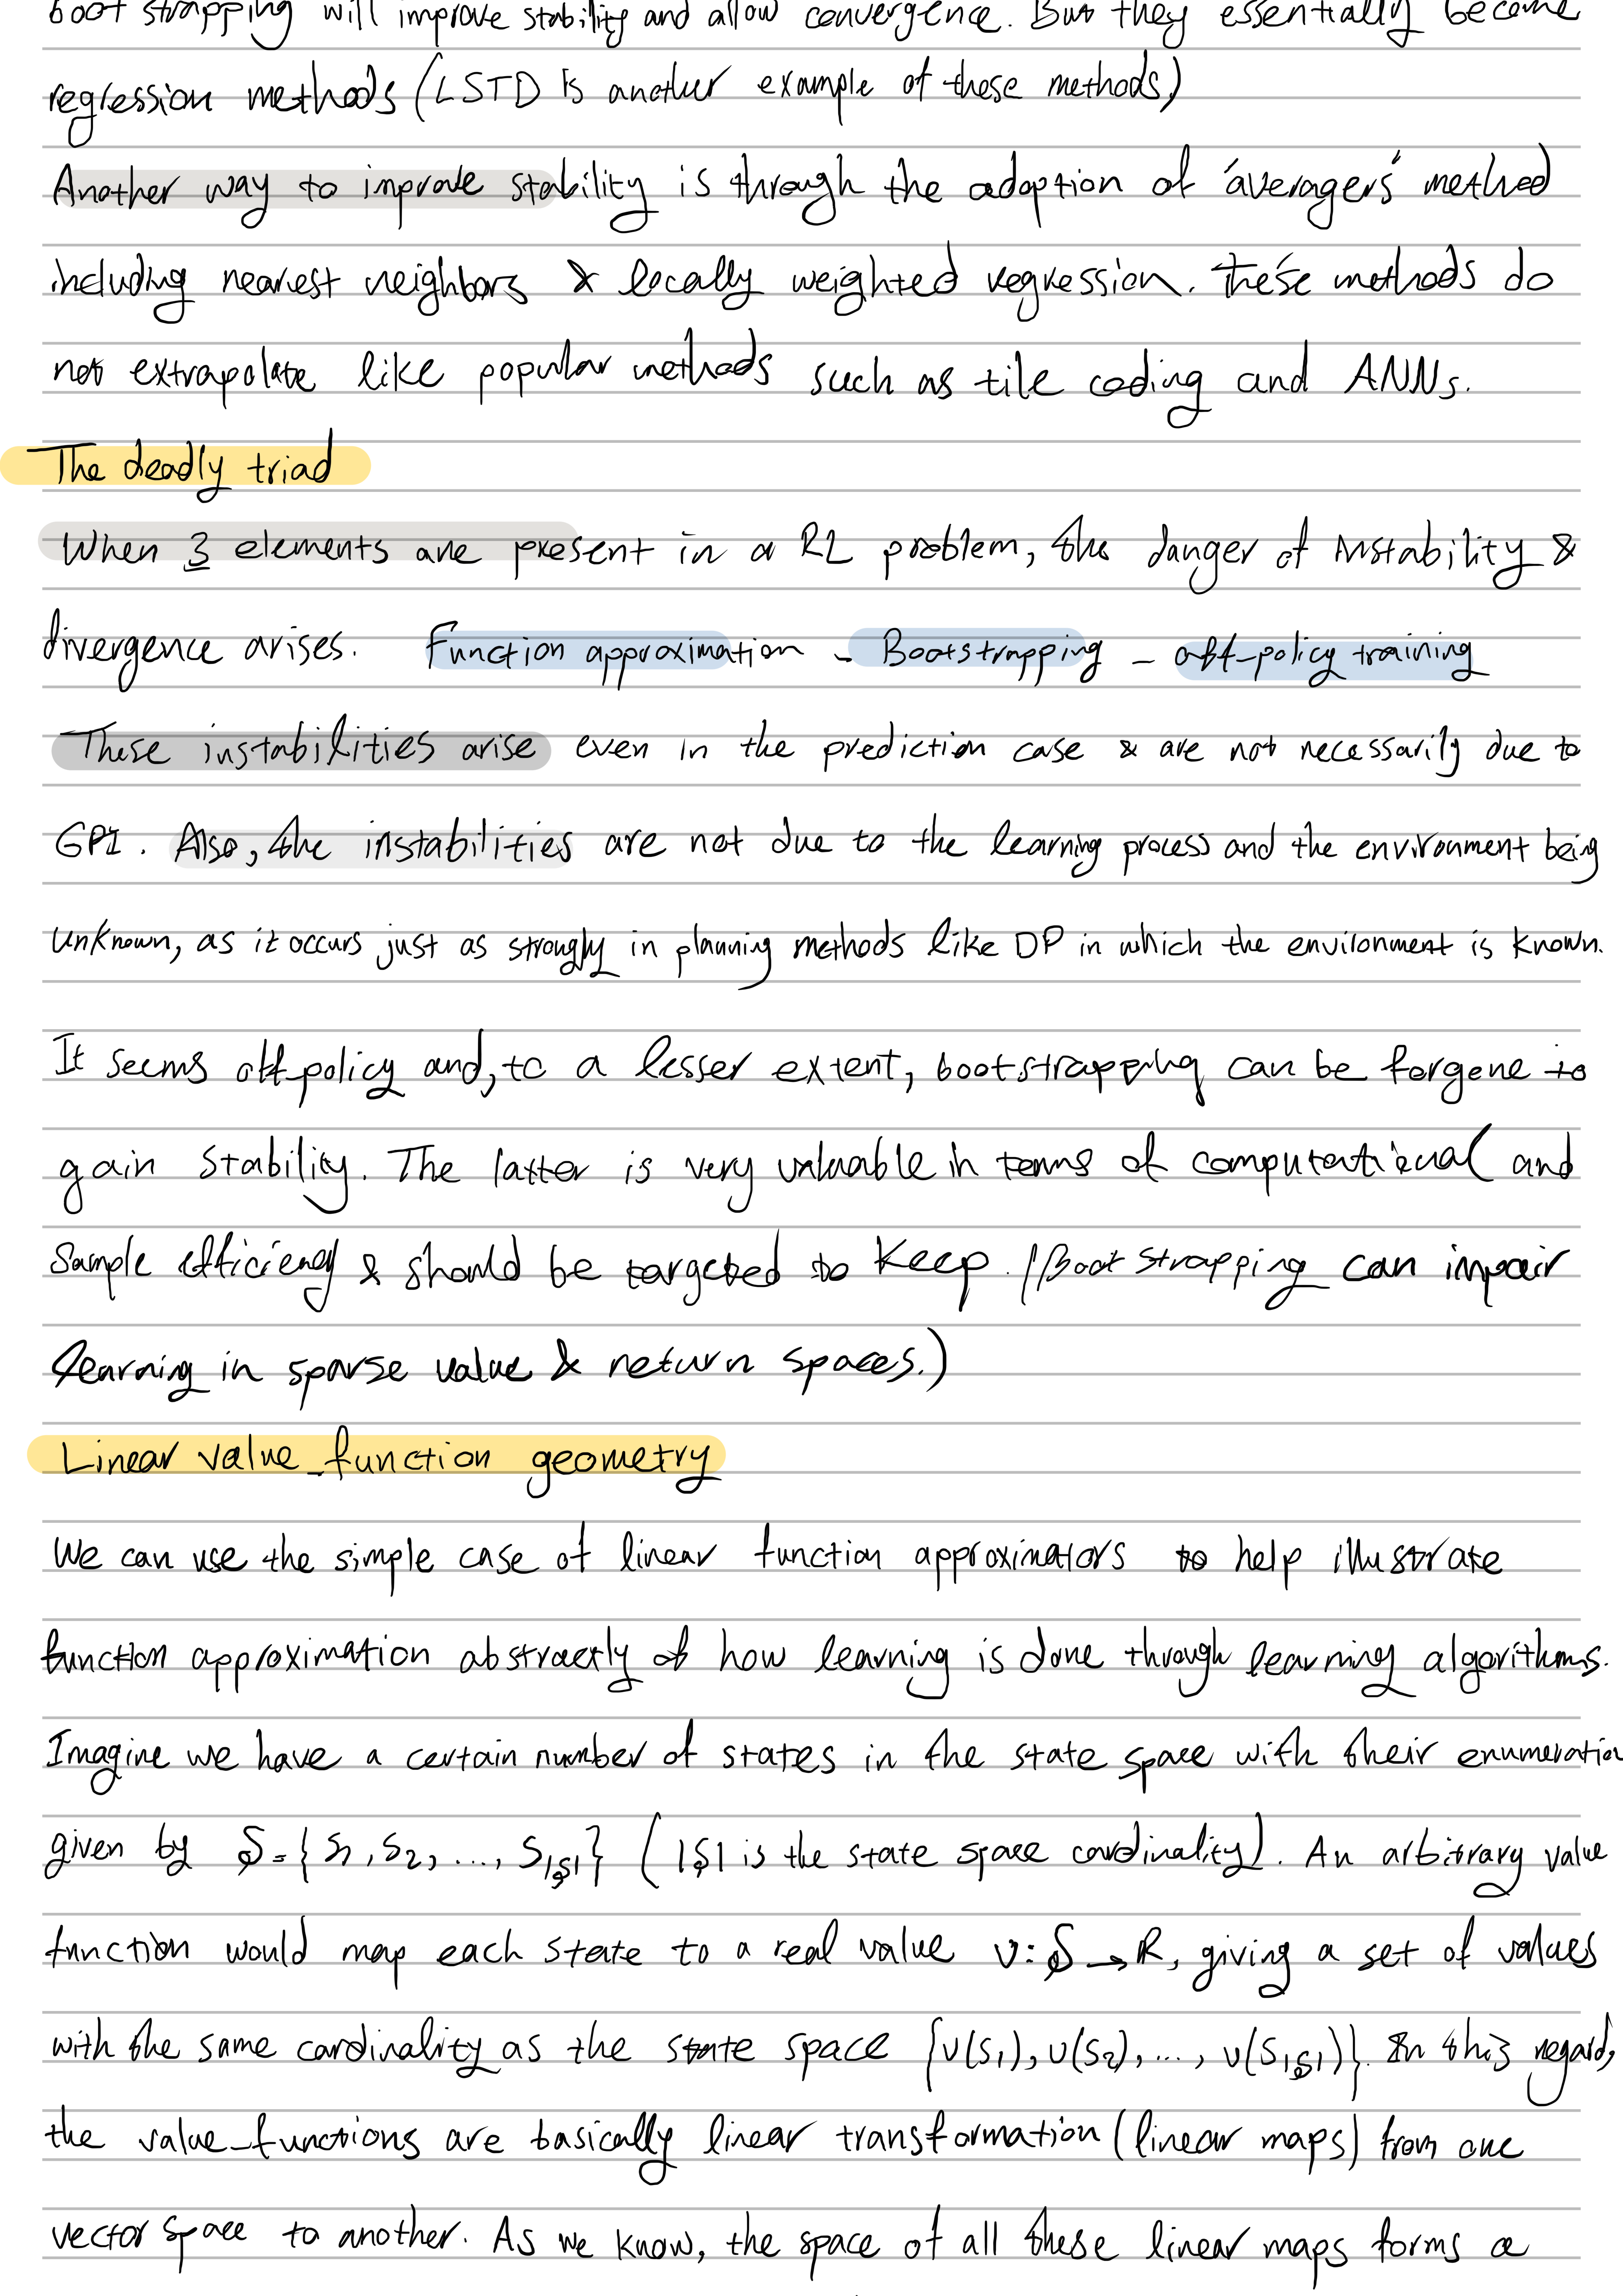 boot strapping will improve stability and allow convergence. But they essentially become
regression methods (LSTD is another example of these methods)
Another way to improve stability is through the adoption of 'averagers' method
including nearest neighbors & locally weighted regression. These methods do
not extrapolate like popular methods such as tile coding and ANNs.
The deadly triad
When 3 elements are present in a RL problem, the danger of instability &
divergence arises. Function approximation - Bootstrapping - off-policy training
These instabilities arise even in the prediction case & are not necessarily due to
GPI. Also, the instabilities are not due to the learning process and the environment being
unknown, as it occurs just as strongly in planning methods like DP in which the environment is known.
It seems off-policy and, to a lesser extent, bootstrapping can be forgone to
gain stability. The latter is very valuable in terms of computational and
sample efficiency & should be targeted to keep. (Boot strapping can impair
learning in sparse value & return spaces.)
Linear value-function geometry
We can use the simple case of linear function approximators to help illustrate
function approximation abstractly of how learning is done through learning algorithms.
Imagine we have a certain number of states in the state space with their enumeration
given by S = { s1, s2, ..., s|S| } ( |S| is the state space cardinality). An arbitrary value
function would map each state to a real value v: S → R, giving a set of values
with the same cardinality as the state space {v(s1), v(s2), ..., v(s|S|)}. In this regard,
the value-functions are basically linear transformation (linear maps) from one
vector space to another. As we know, the space of all these linear maps forms a